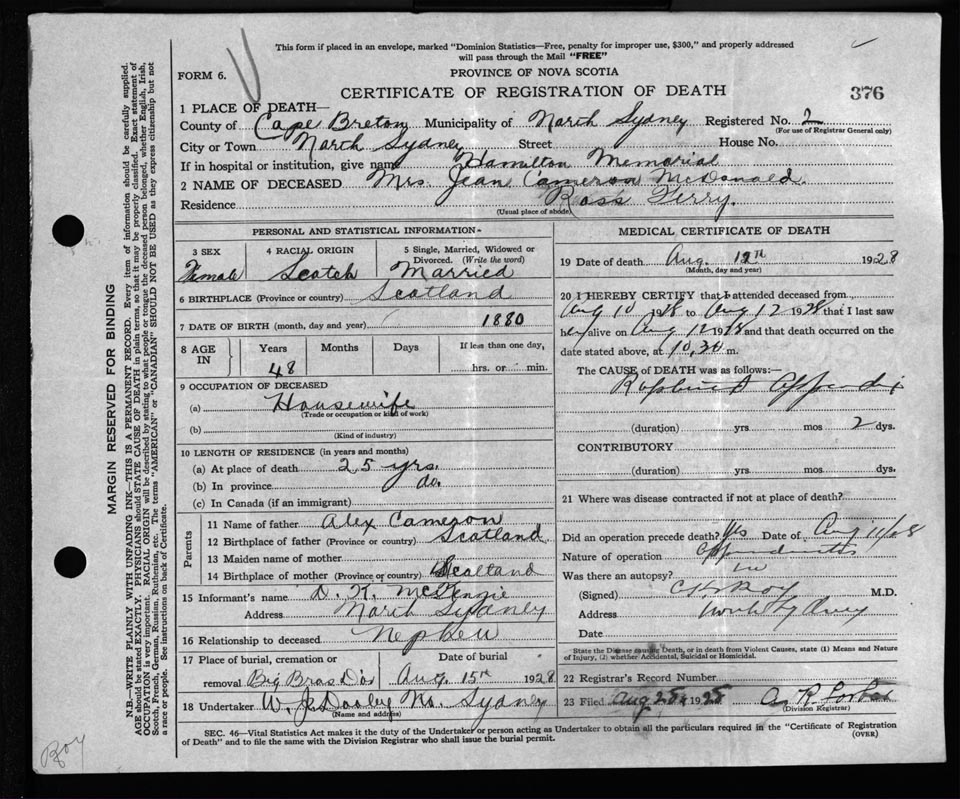 This form if placed in an envelope, marked "Dominion Statistics—Free, penalty for improper use, $300," and properly addressed
will pass through the Mail "FREE"
FORM 6.
PROVINCE OF NOVA SCOTIA
CERTIFICATE OF REGISTRATION OF DEATH
376
1 PLACE OF DEATH—
County of Cape Breton Municipality of North Sydney Registered No. 2
(For use of Registrar General only)
City or Town North Sydney Street House No.
If in hospital or institution, give name Hamilton Memorial
2 NAME OF DECEASED Mrs. Jean Cameron McDonald.
Residence Ross Ferry.
(Usual place of abode)
PERSONAL AND STATISTICAL INFORMATION
3 SEX 4 RACIAL ORIGIN 5 Single, Married, Widowed or
Divorced. (Write the word)
Female Scotch Married
6 BIRTHPLACE (Province or country) Scotland
7 DATE OF BIRTH (month, day and year) 1880
8 AGE IN Years Months Days If less than one day,
48 hrs. or min.
9 OCCUPATION OF DECEASED
(a) Housewife
(Trade or occupation or kind of work)
(b)
(Kind of industry)
10 LENGTH OF RESIDENCE (in years and months)
(a) At place of death 25 yrs.
(b) In province do.
(c) In Canada (if an immigrant)
Parents
11 Name of father Alex Cameron
12 Birthplace of father (Province or country) Scotland.
13 Maiden name of mother
14 Birthplace of mother (Province or country) Scotland
15 Informant's name D. K. McKenzie
Address North Sydney
16 Relationship to deceased Nephew
17 Place of burial, cremation or Date of burial
removal Big Bras D'or Aug. 15th 1928
18 Undertaker W. J. Dooley No. Sydney
(Name and address)
MEDICAL CERTIFICATE OF DEATH
19 Date of death Aug. 12th 1928
(Month, day and year)
20 I HEREBY CERTIFY that I attended deceased from
Aug 10 1928 to Aug 12 1928 that I last saw
her alive on Aug 12 1928 and that death occurred on the
date stated above, at 10,30 m.
The CAUSE of DEATH was as follows:—
Ruptured Appendix
(duration) yrs. mos 2 dys.
CONTRIBUTORY
(duration) yrs. mos. dys.
21 Where was disease contracted if not at place of death?
Did an operation precede death? Yes Date of Aug 11/28
Nature of operation Appendicitis
Was there an autopsy? no
(Signed) M.D.
Address North Sydney
Date
State the Disease causing Death, or in death from Violent Causes, state (1) Means and Nature
of Injury, (2) whether Accidental, Suicidal or Homicidal.
22 Registrar's Record Number
23 Filed Aug 25th 1928
(Division Registrar)
SEC. 46—Vital Statistics Act makes it the duty of the Undertaker or person acting as Undertaker to obtain all the particulars required in the "Certificate of Registration
of Death" and to file the same with the Division Registrar who shall issue the burial permit. (OVER)
MARGIN RESERVED FOR BINDING
N.B.—WRITE PLAINLY WITH UNFADING INK—THIS IS A PERMANENT RECORD. Every item of information should be carefully supplied.
AGE should be stated EXACTLY. PHYSICIANS should STATE CAUSE OF DEATH in plain terms, so that it may be properly classified. Exact statement of
OCCUPATION is very important. RACIAL ORIGIN will be described by stating to what people or tongue the deceased person belonged, whether English, Irish,
Scotch, French, German, Russian, Ruthenian, etc. The terms "AMERICAN" or "CANADIAN" SHOULD NOT BE USED as they express citizenship but not
a race or people. See instructions on back of Certificate.